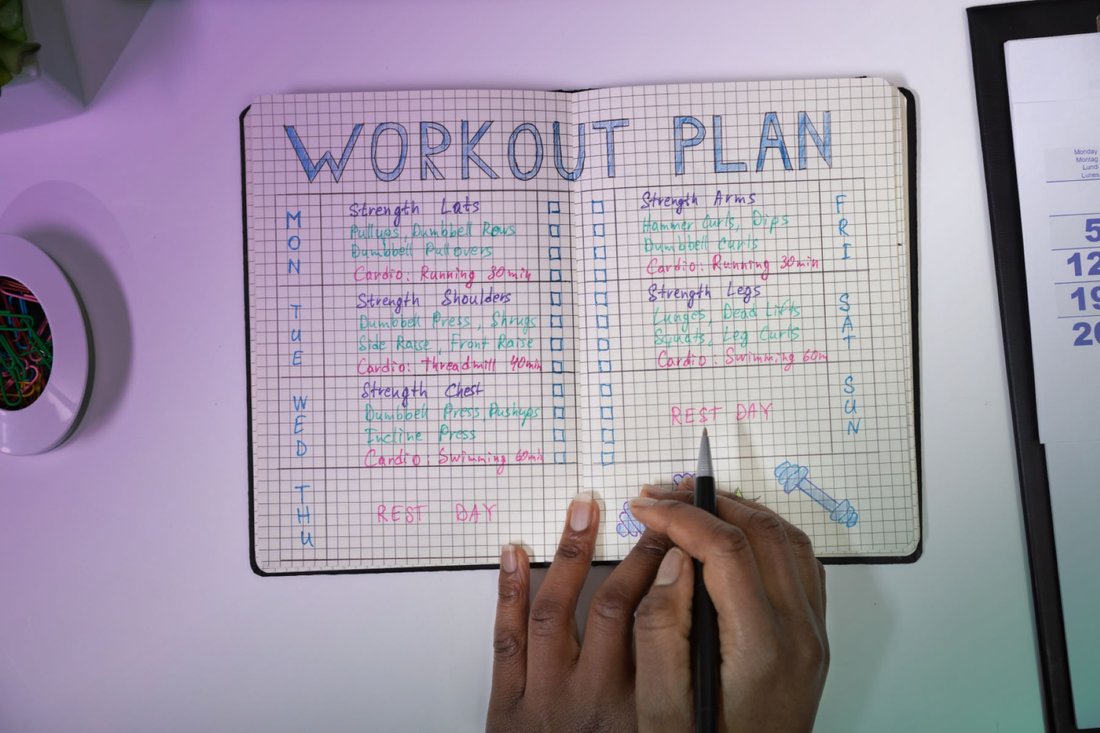 WORKOUT PLAN
MON
Strength Lats
Pullups, Dumbbell Rows
Dumbbell Pullovers
Cardio: Running 30min
TUE
Strength Shoulders
Dumbbell Press, Shrugs
Side Raise, Front Raise
Cardio: Threadmill 40min
WED
Strength Chest
Dumbbell Press, Pushups
Incline Press
Cardio: Swimming 60min
THU
REST DAY
FRI
Strength Arms
Hammer Curls, Dips
Dumbbell Curls
Cardio: Running 30min
SAT
Strength Legs
Lunges, Dead Lifts
Squats, Leg Curls
Cardio: Swimming 60m
SUN
REST DAY
Monday
Montag
Lundi
Lunes
5
12
19
26